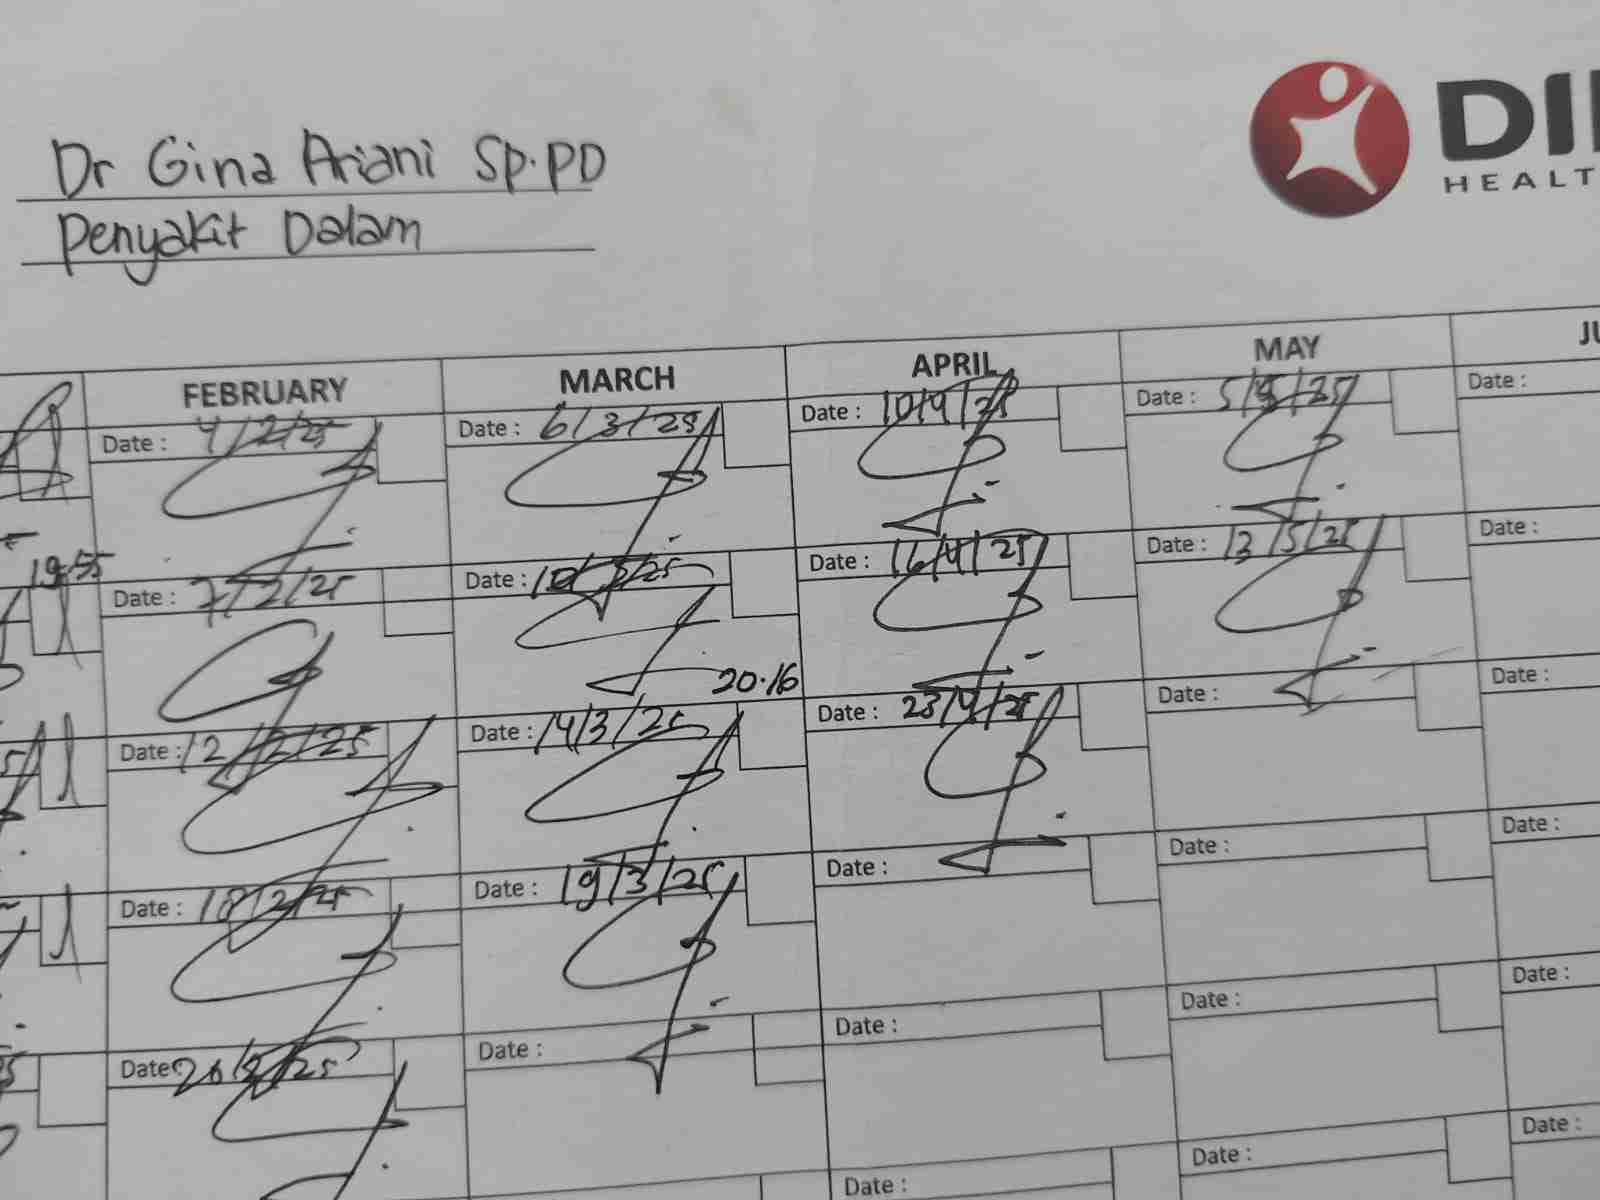 Dr Gina Ariani Sp.PD
Penyakit Dalam
HEALT
FEBRUARY MARCH APRIL MAY
Date : 4/2/25 Date : 6/3/25 Date : 10/4/25 Date : 5/5/25 Date :
19.55
Date : 7/2/25 Date : Date : 16/4/25 Date : 13/5/25 Date :
20.16
Date : 12/2/25 Date : 14/3/25 Date : 23/4/25 Date : Date :
Date : 18/2/25 Date : 19/3/25 Date : Date : Date :
Date : 20/2/25 Date : Date : Date : Date :
Date : Date : Date :